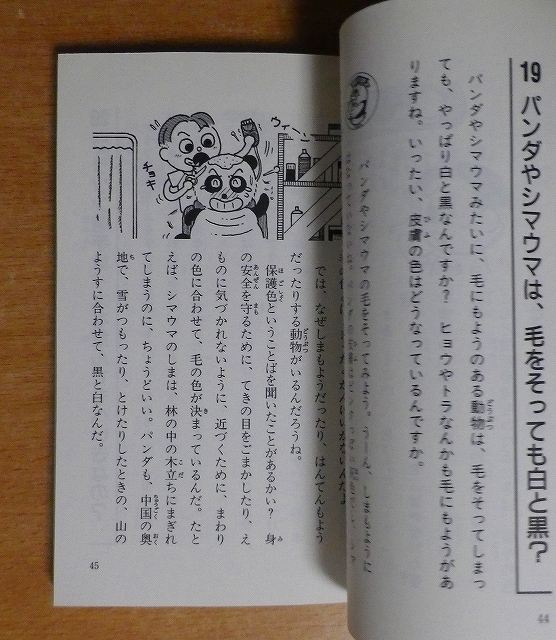 19 パンダやシマウマは、毛をそっても白と黒?
パンダやシマウマみたいに、毛にもようのある動物は、毛をそってしまっ
ても、やっぱり白と黒なんですか? ヒョウやトラなんかも毛にもようがあ
りますね。いったい、皮膚の色はどうなっているんですか。
パンダやシマウマの毛をそってみよう。うーん、しまもように
44
ウィーン
チョキ
では、なぜしまもようだったり、はんてんもよう
だったりする動物がいるんだろうね。
保護色ということばを聞いたことがあるかい? 身
の安全を守るために、てきの目をごまかしたり、え
ものに気づかれないように、近づくために、まわり
の色に合わせて、毛の色が決まっているんだ。たと
えば、シマウマのしまは、林の中の木立ちにまぎれ
てしまうのに、ちょうどいい。パンダも、中国の奥
地で、雪がつもったり、とけたりしたときの、山の
ようすに合わせて、黒と白なんだ。
45